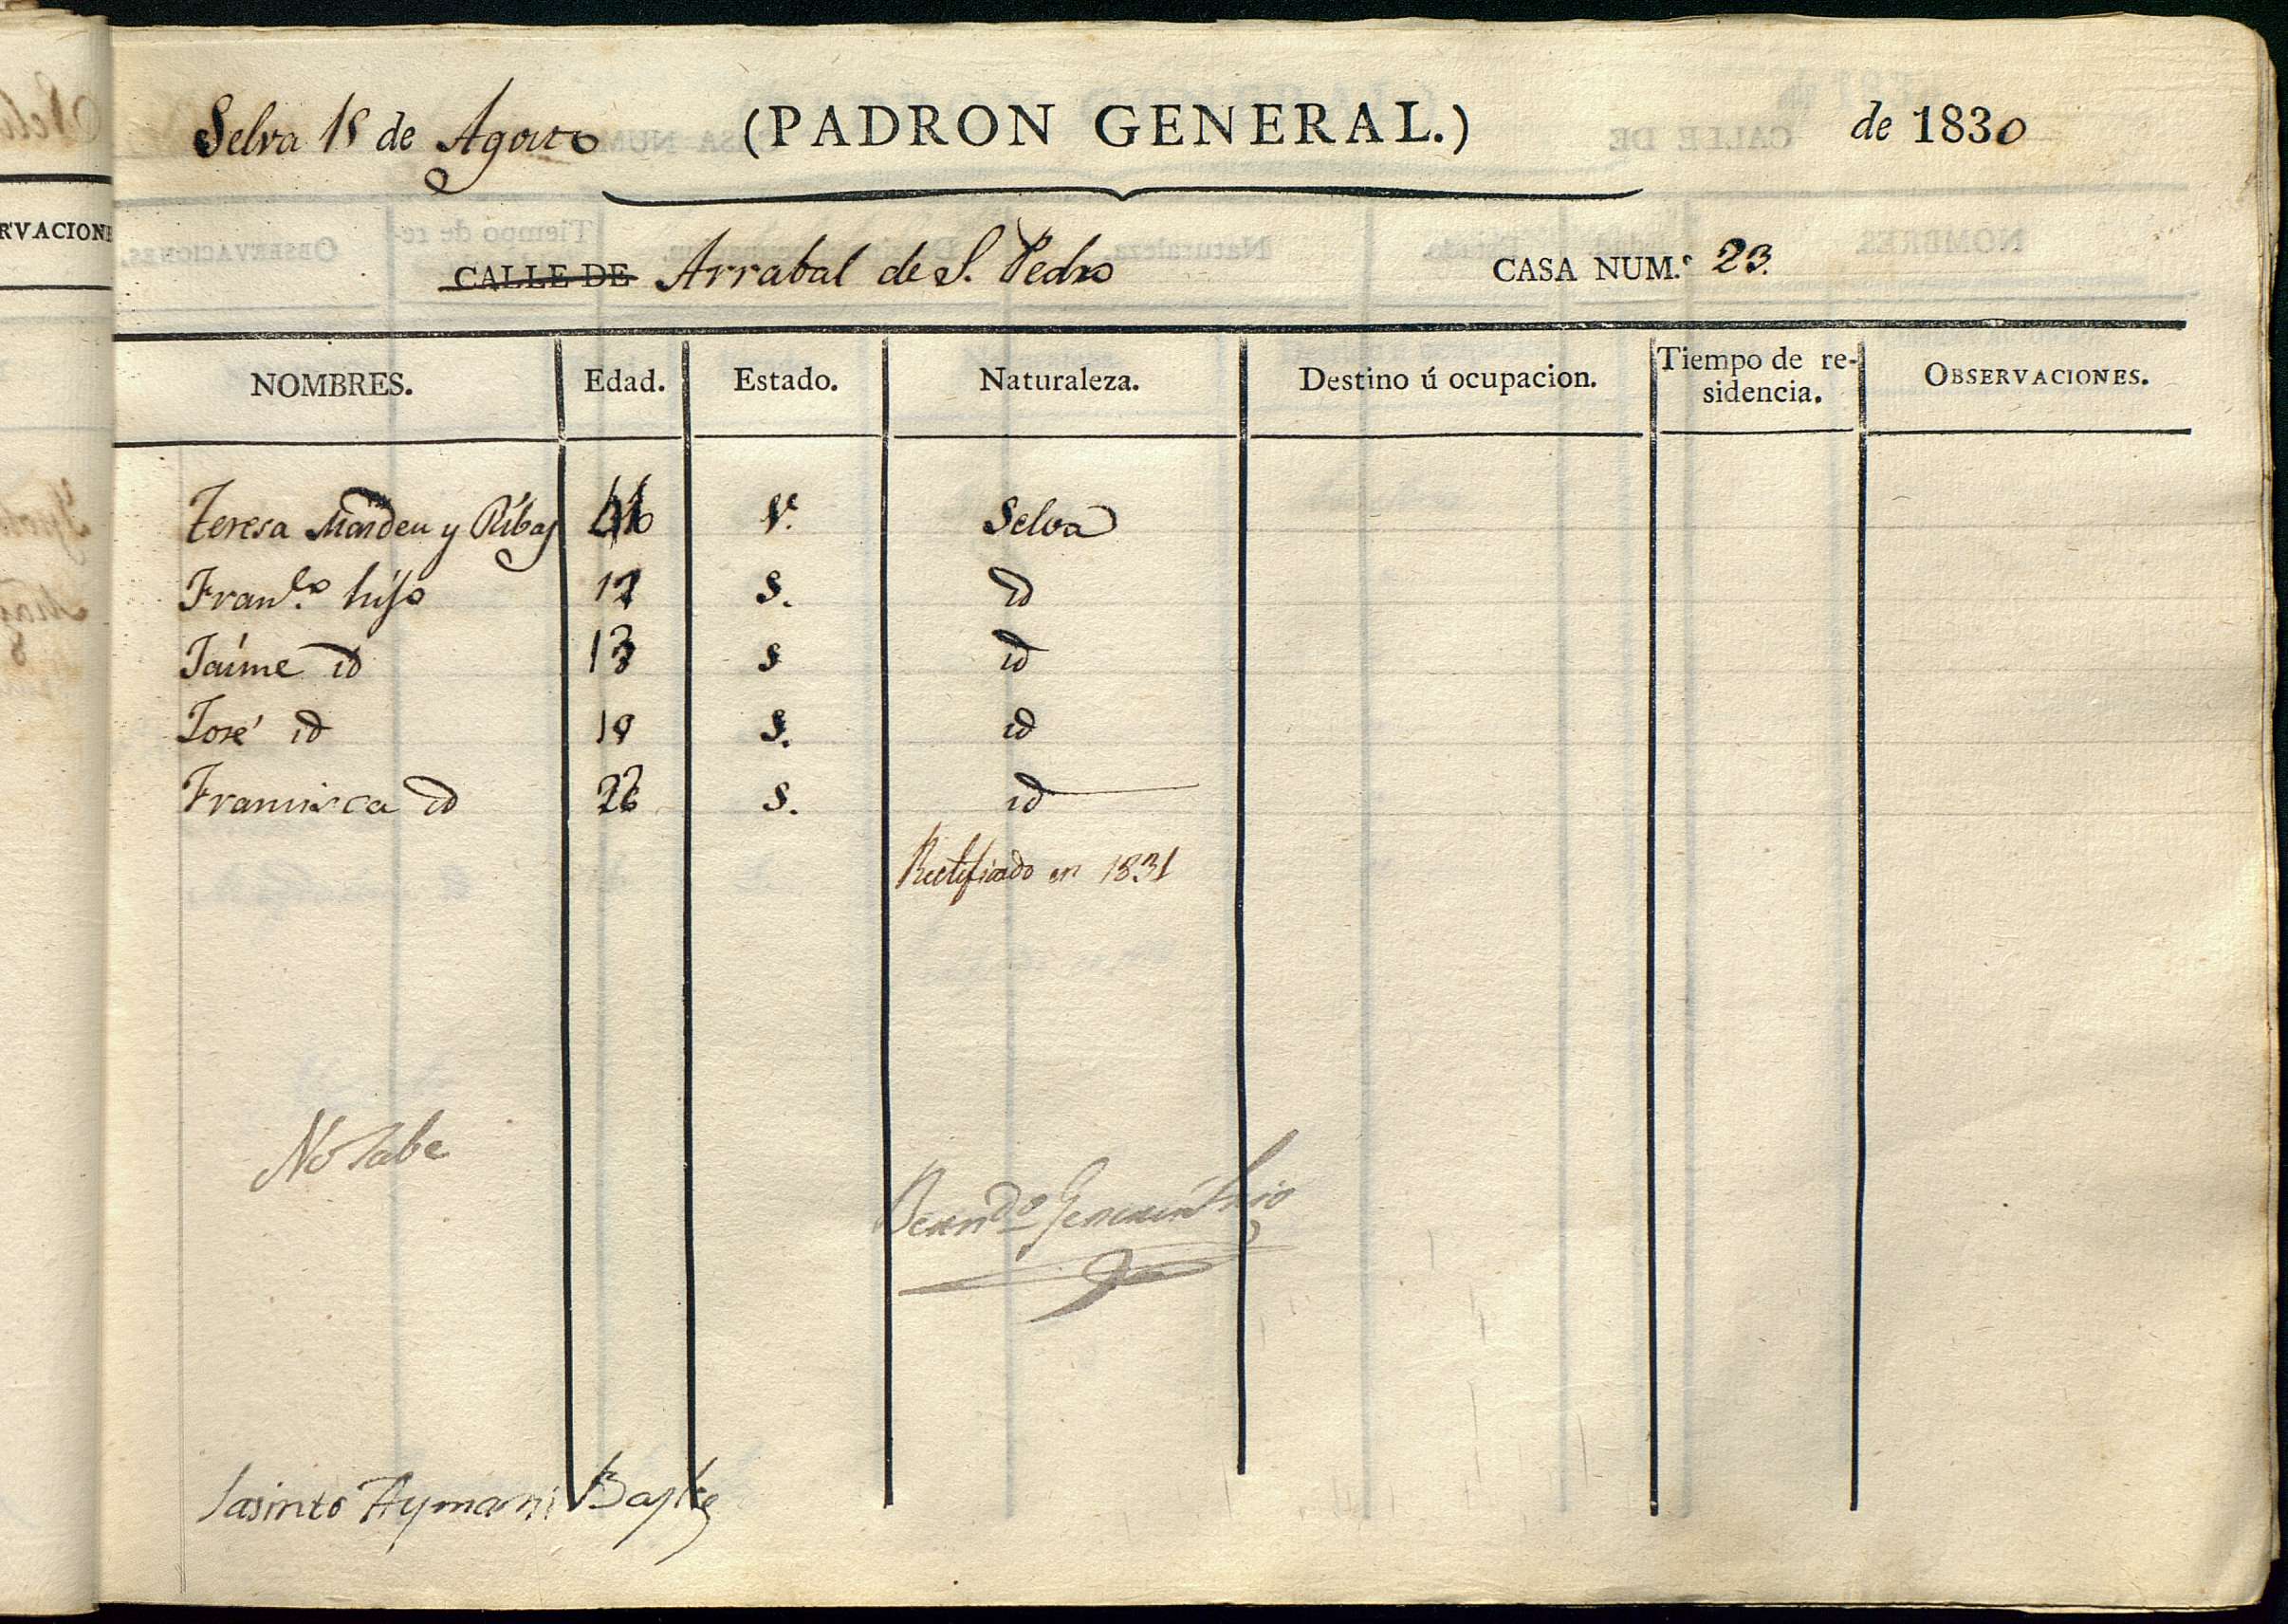 Selva 18 de Agosto (PADRON GENERAL.) de 1830
CALLE DE Arrabal de S. Pedro CASA NUM.º 23.
RVACIONE
NOMBRES. Edad. Estado. Naturaleza. Destino ú ocupacion. Tiempo de re-
sidencia. OBSERVACIONES.
Teresa y Ribas V. Selva
Fran.co hijo S. id
Jaime id 13 s id
José id S. id
Francisca id S. id
Rectificado en 1831
No sabe
Jasinto Aymami Bayle